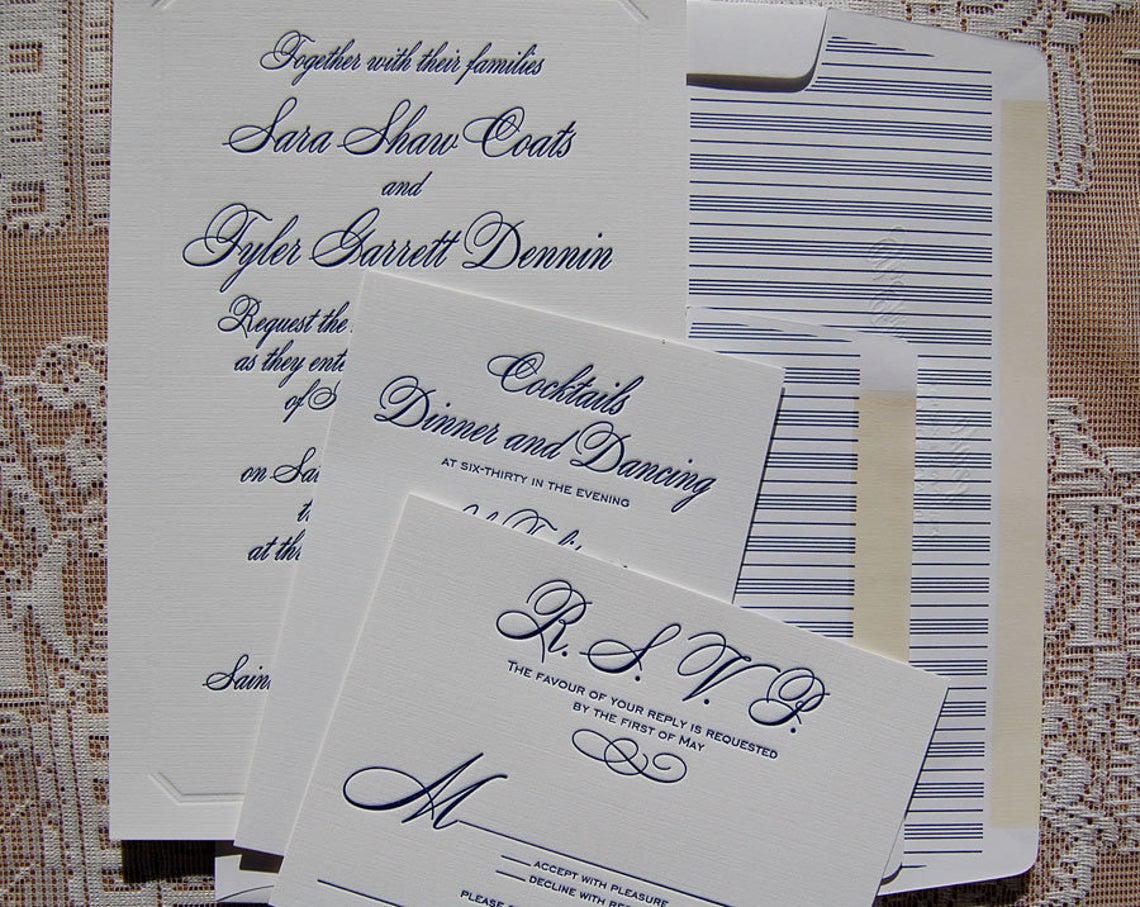 Together with their families
Sara Shaw Coats
and
Tyler Garrett Dennin
Request the
as they
of
on
at
Cocktails
Dinner and Dancing
AT SIX-THIRTY IN THE EVENING
R. S. V. P.
THE FAVOUR OF YOUR REPLY IS REQUESTED
BY THE FIRST OF MAY
M
ACCEPT WITH PLEASURE
DECLINE WITH
PLEASE